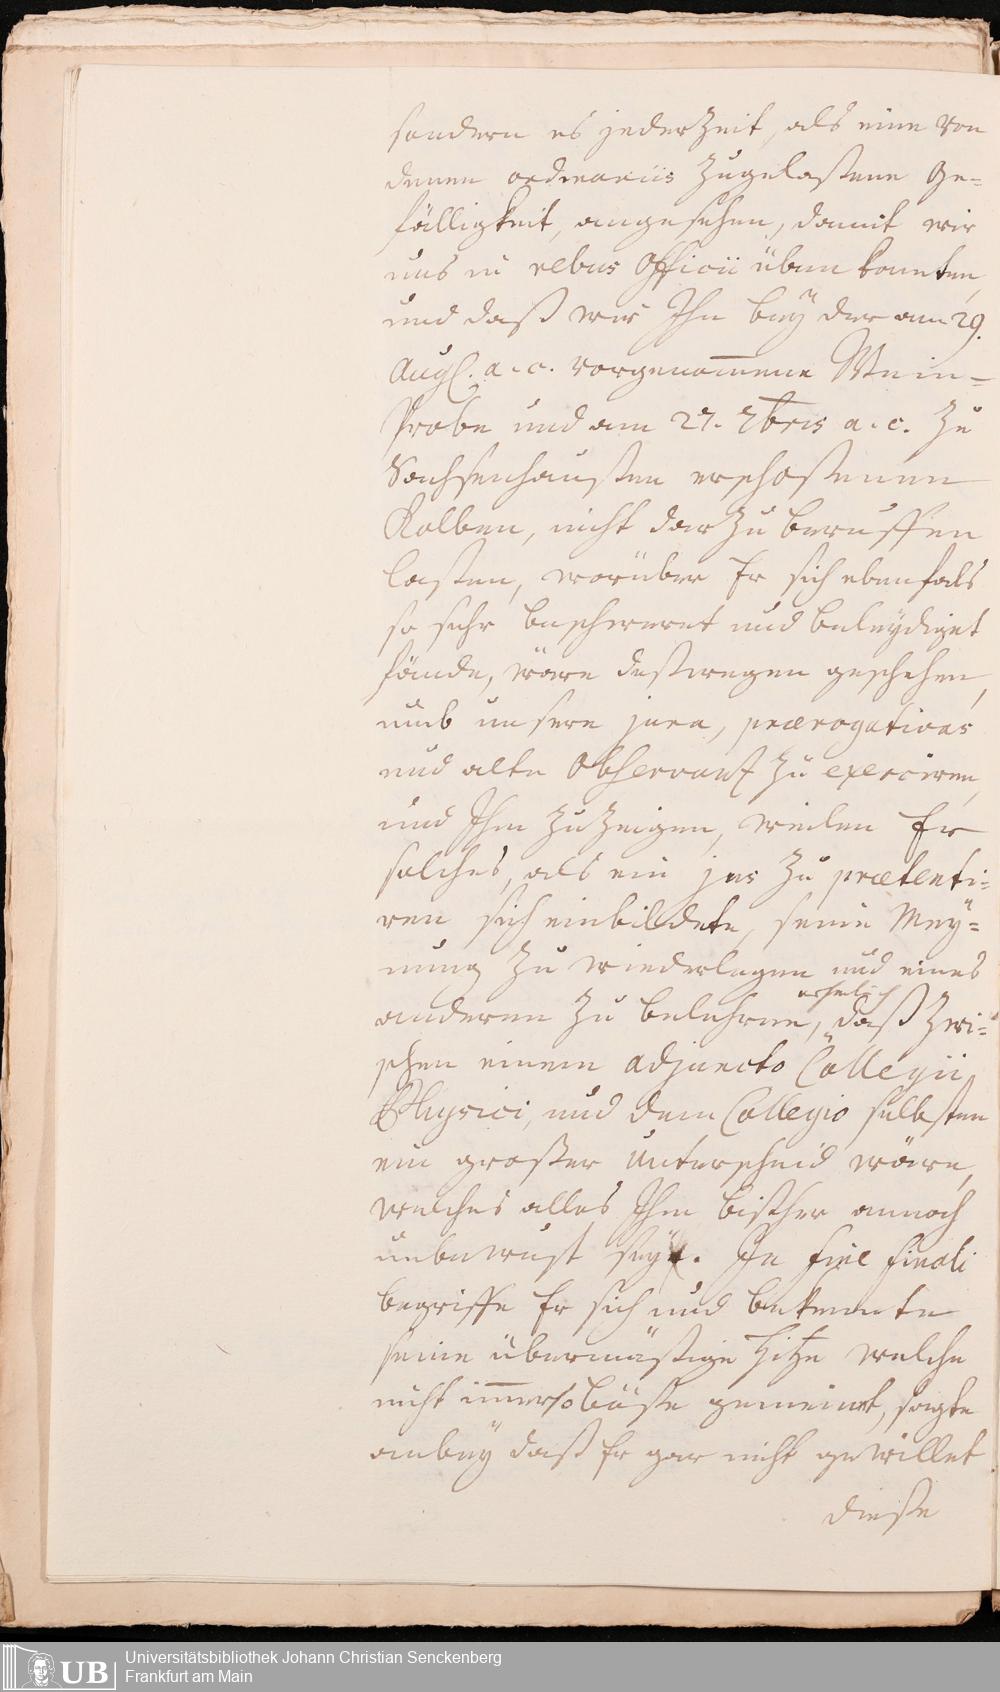 sondern es jederzeit, als eine von
denen ordinariis zugelaßene Ge-
fälligkeit, angesehen, damit wir
uns in rebus Officii üben konten,
und daß wir Ihn beÿ der am 29.
Aug. a. c. vorgenom̅ene Wein-
Probe und am 27. 7bris a. c. zu
Sachsenhaußen erschoßenen
Kolben, nicht darzu beruffen
laßen, worüber Er sich ebenfals
so sehr beschweret und beleÿdiget
fände, wäre deßwegen geschehen,
umb unsere jura, prærogativas
und alte Observantz zu exerciren,
und Ihm zu zeigen, weilen Er
solches, als ein jus zu prætenti-
ren sich einbildete, seine Meÿ-
nung zu wiederlegen und eines
anderen zu belehren, daß zwi-
schen einem adjuncto Collegii
Physici, und dem Collegio selbsten
ein großer Unterscheid wäre,
welches alles Ihm bißher annoch
unbewust seÿ. In fine finali
begriffe Er sich und bekennte
seine übermäßige Hitze welche
nicht im̅er so böße gemeint, sagte
anbeÿ daß Er gar nicht gewillet
dieße
UB
Universitätsbibliothek Johann Christian Senckenberg
Frankfurt am Main